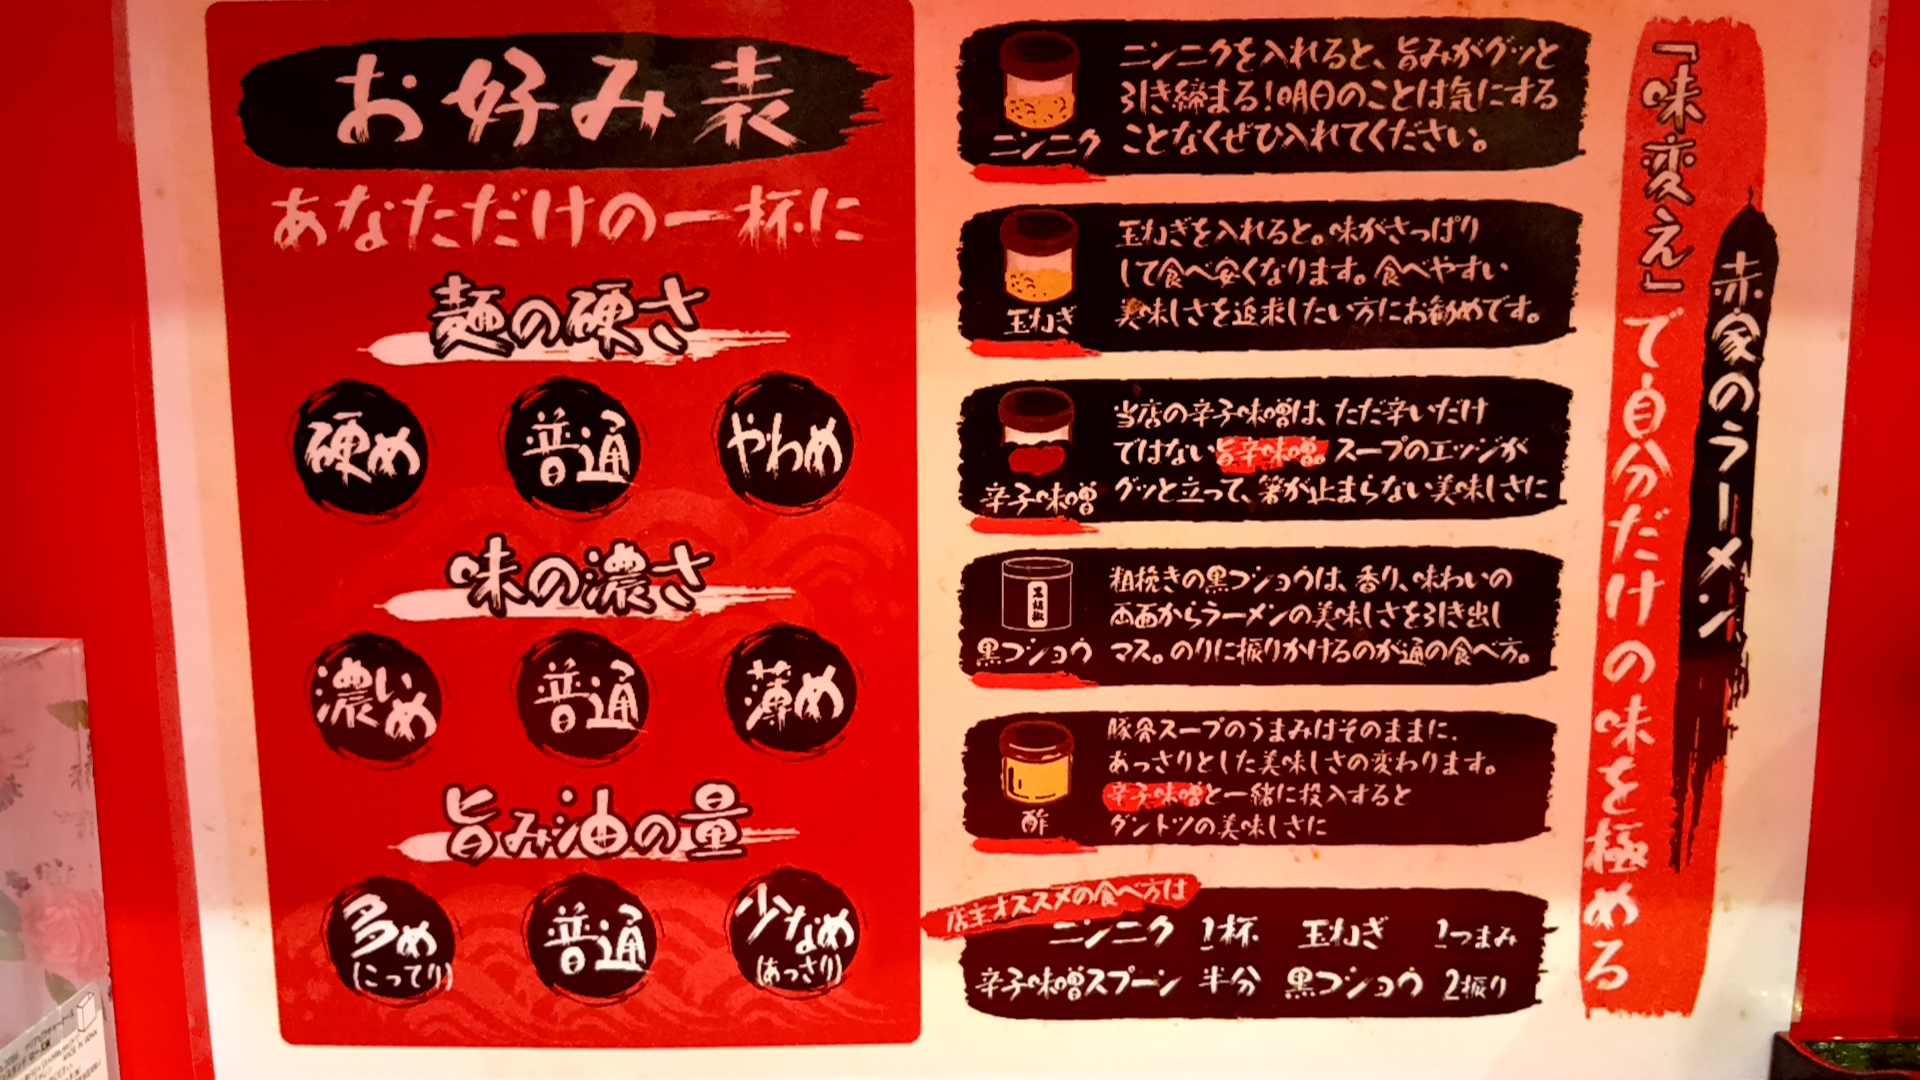 お好み表
あなただけの一杯に
麺の硬さ
硬め
普通
やわめ
味の濃さ
濃いめ
普通
薄め
旨み油の量
多め
(こってり)
普通
少なめ
(あっさり)
ニンニク
ニンニクを入れると、旨みがグッと
引き締まる!明日のことは気にする
ことなくぜひ入れてください。
玉ねぎ
玉ねぎを入れると。味がさっぱり
して食べ安くなります。食べやすい
美味しさを追求したい方にお勧めです。
辛子味噌
当店の辛子味噌は、ただ辛いだけ
ではない旨辛味噌。スープのエッジが
グッと立って、箸が止まらない美味しさに
黒胡椒
黒コショウ
粗挽きの黒コショウは、香り、味わいの
両面からラーメンの美味しさを引き出し
マス。のりに振りかけるのが通の食べ方。
酢
豚骨スープのうまみはそのままに、
あっさりとした美味しさの変わります。
辛子味噌と一緒に投入すると
ダントツの美味しさに
店主オススメの食べ方は
ニンニク 1杯 玉ねぎ 1つまみ
辛子味噌スプーン 半分 黒コショウ 2振り
赤家のラーメン
「味変え」で自分だけの味を極める